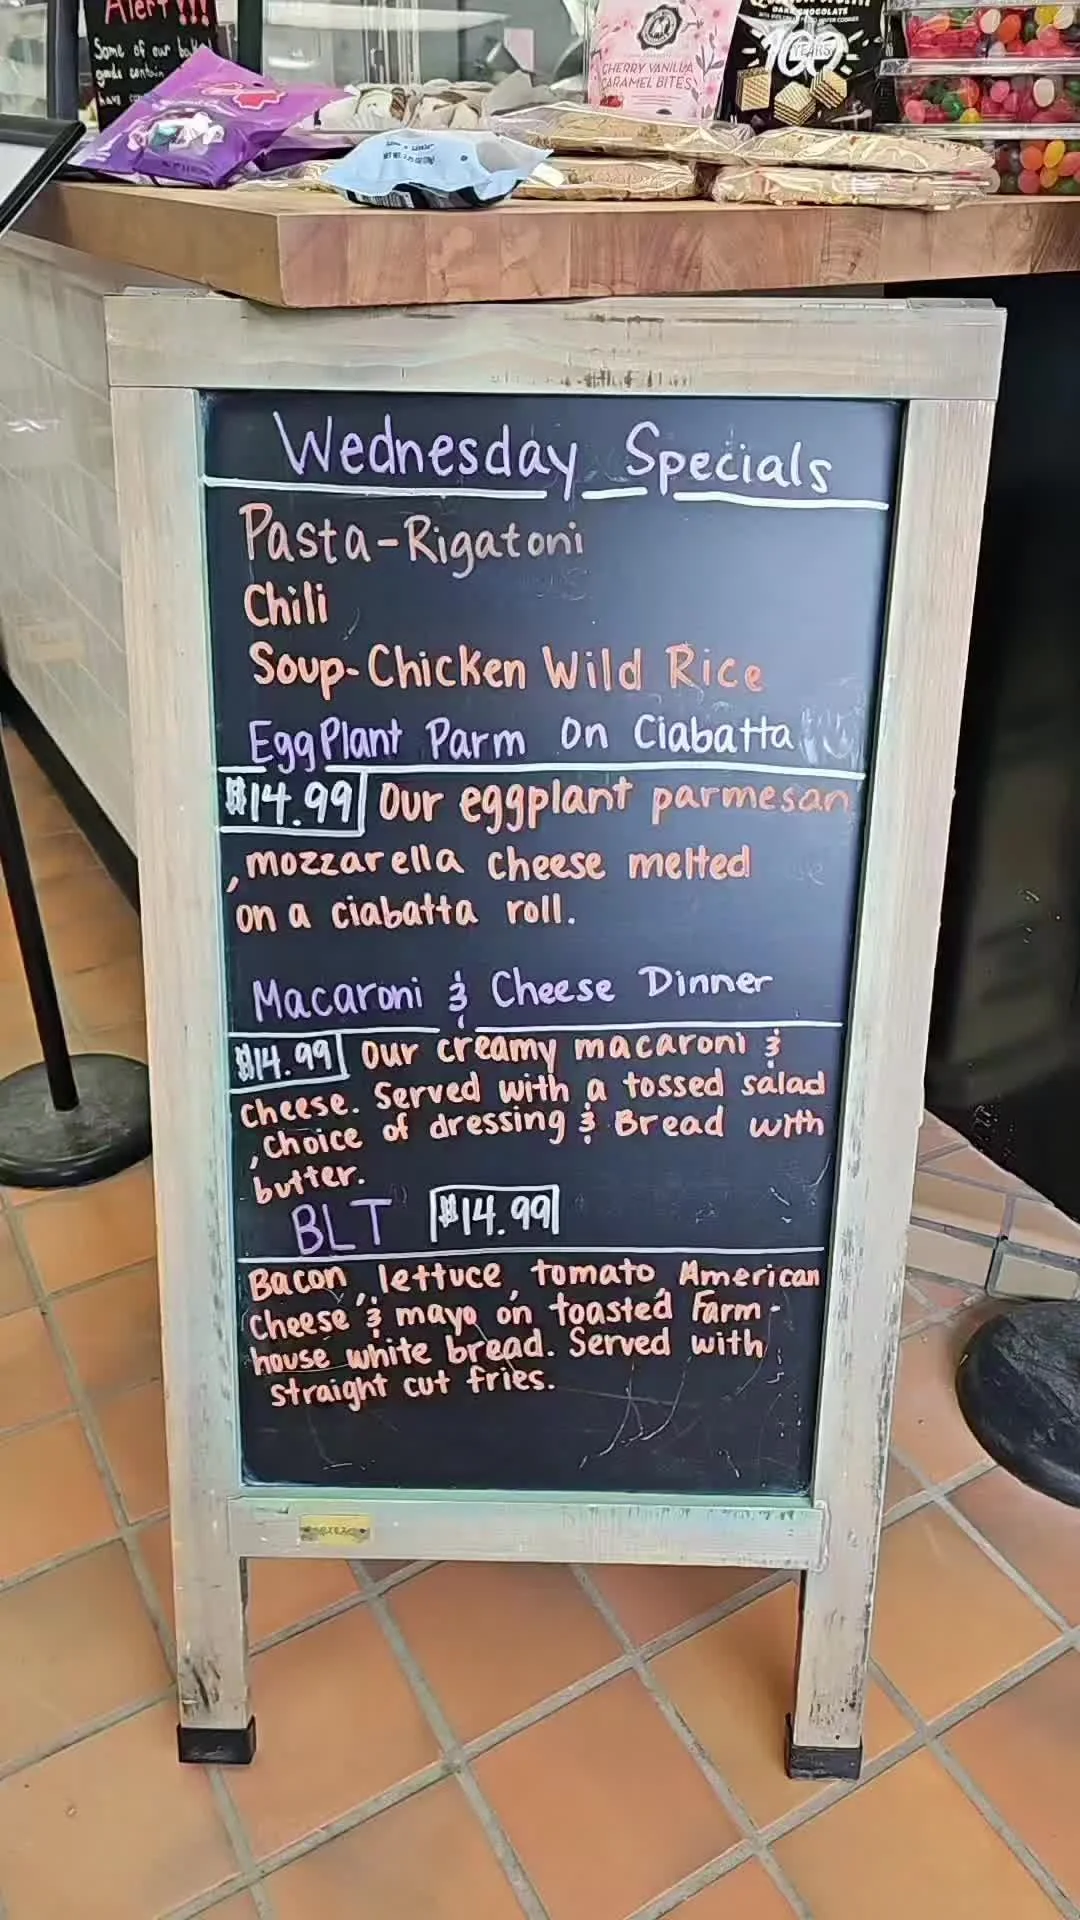 Alert!!!
Some of our baked
goods contain
CHERRY VANILLA
CARAMEL BITES
DARK CHOCOLATE
100
YEARS
Wednesday Specials
Pasta-Rigatoni
Chili
Soup-Chicken Wild Rice
EggPlant Parm On Ciabatta
$14.99 Our eggplant parmesan
,mozzarella cheese melted
on a ciabatta roll.
Macaroni & Cheese Dinner
$14.99 Our creamy macaroni &
cheese. Served with a tossed salad
,choice of dressing & Bread with
butter.
BLT $14.99
Bacon, lettuce, tomato, American
cheese & mayo on toasted Farm-
house white bread. Served with
straight cut fries.